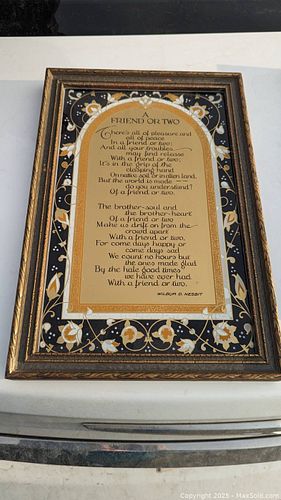 A
FRIEND OR TWO
There's all of pleasure and
all of peace
In a friend or two;
And all your troubles
may find release
With a friend or two;
It's in the grip of the
clasping hand
On native soil or in alien land,
But the world is made —
do you understand?
Of a friend or two.
The brother-soul and
the brother-heart
Of a friend or two
Make us drift on from the
crowd apart
With a friend or two.
For come days happy or
come days sad
We count no hours but
the ones made glad
By the hale good times
we have ever had
With a friend or two.
WILBUR D. NESBIT
Copyright 2025 - MaxSold.com